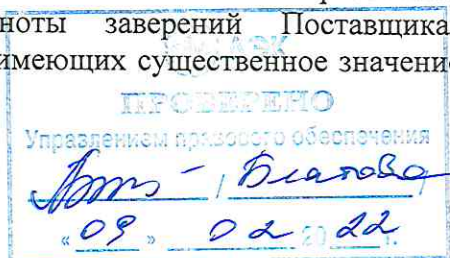 ноты заверений Поставщика
имеющих существенное значение
АЭК
ПРОВЕРЕНО
Управлением правового обеспечения
/ Блатова /
« 09 » 02 2022 г.